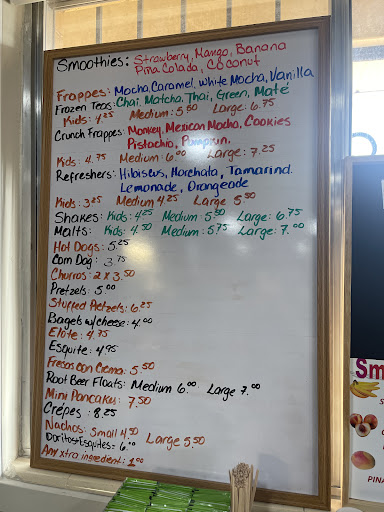 Smoothies: Strawberry, Mango, Banana
Pina Colada, Coconut
Frappes: Mocha, Caramel, White Mocha, Vanilla
Frozen Teas: Chai, Matcha, Thai, Green, Maté
Kids: 4.25 Medium: 5.50 Large: 6.75
Crunch Frappes: Monkey, Mexican Mocha, Cookies
Pistachio, Pumpkin.
Kids: 4.75 Medium: 6.00 Large: 7.25
Refreshers: Hibiscus, Horchata, Tamarind
Lemonade, Orangeade
Kids: 3.25 Medium 4.25 Large 5.50
Shakes: Kids: 4.25 Medium: 5.50 Large: 6.75
Malts: Kids: 4.50 Medium: 5.75 Large: 7.00
Hot Dogs: 5.25
Corn Dog: 3.75
Churros: 2 x 3.50
Pretzels: 5.00
Stuffed Pretzels: 6.25
Bagels w/cheese: 4.00
Elote: 4.75
Esquite: 4.95
Fresas con Crema: 5.50
Root Beer Floats: Medium 6.00 Large 7.00
Mini Pancakes: 7.50
Crepes: 8.25
Nachos: Small 4.50 Large 5.50
Doritos+Esquites= 6.00
Any xtra ingredient: 1.00
Sm
PINA